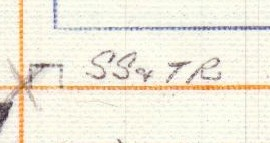 SS & TR